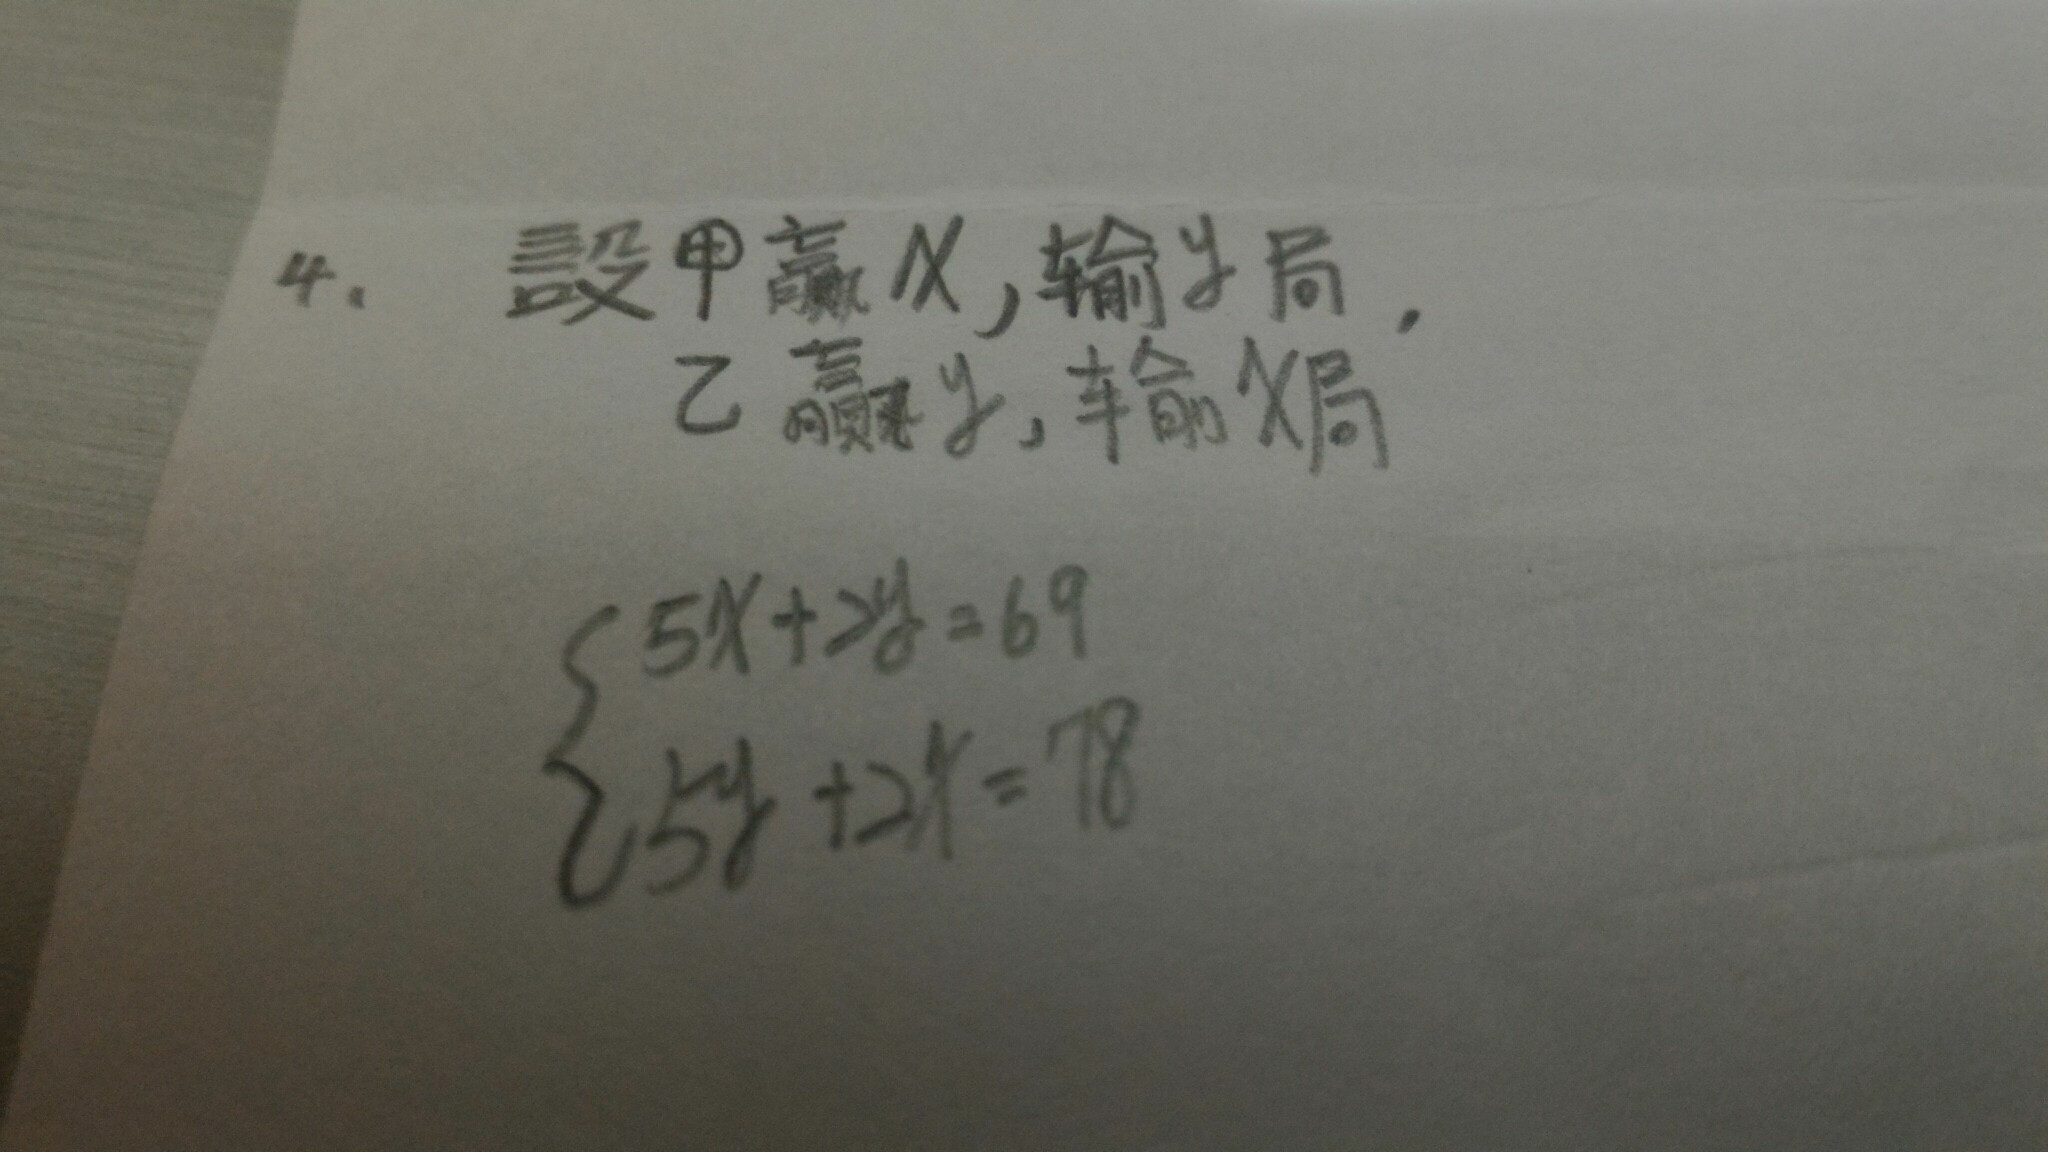 4. 設甲贏x,輸y局.
乙贏y,輸x局
5x+2y=69
5y+2x=78